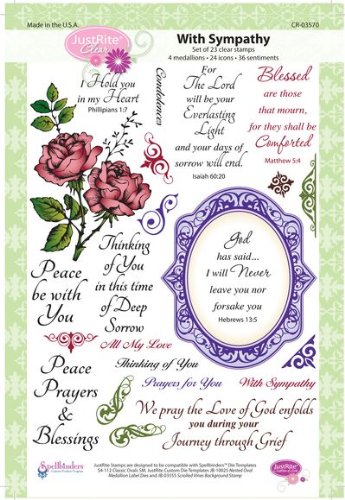 Made in the U.S.A.
CR-03570
JustRite
Clear
With Sympathy
Set of 23 clear stamps
4 medallions • 24 icons • 36 sentiments
I Hold you
in my Heart
Phillipians 1:7
Condolences
For
The Lord
will be your
Everlasting
Light
and your days of
sorrow will end.
Isaiah 60:20
Blessed
are those
that mourn,
for they shall be
Comforted
Matthew 5:4
Peace
be with
You
Thinking
of You
in this time
of Deep
Sorrow
God
has said...
I will Never
leave you nor
forsake you
Hebrews 13:5
All My Love
Peace
Prayers
&
Blessings
Thinking of You
Prayers for You
With Sympathy
We pray the Love of God enfolds
you during your
Journey through Grief
Spellbinders
JustRite Stamps are designed to be compatible with Spellbinders™ Die Templates
S4-112 Classic Ovals SM, JustRite Custom Die Templates JB-10025 Nested Oval
Medallion Label Dies and JB-03155 Scrolled Vines Background Stamp
JustRite